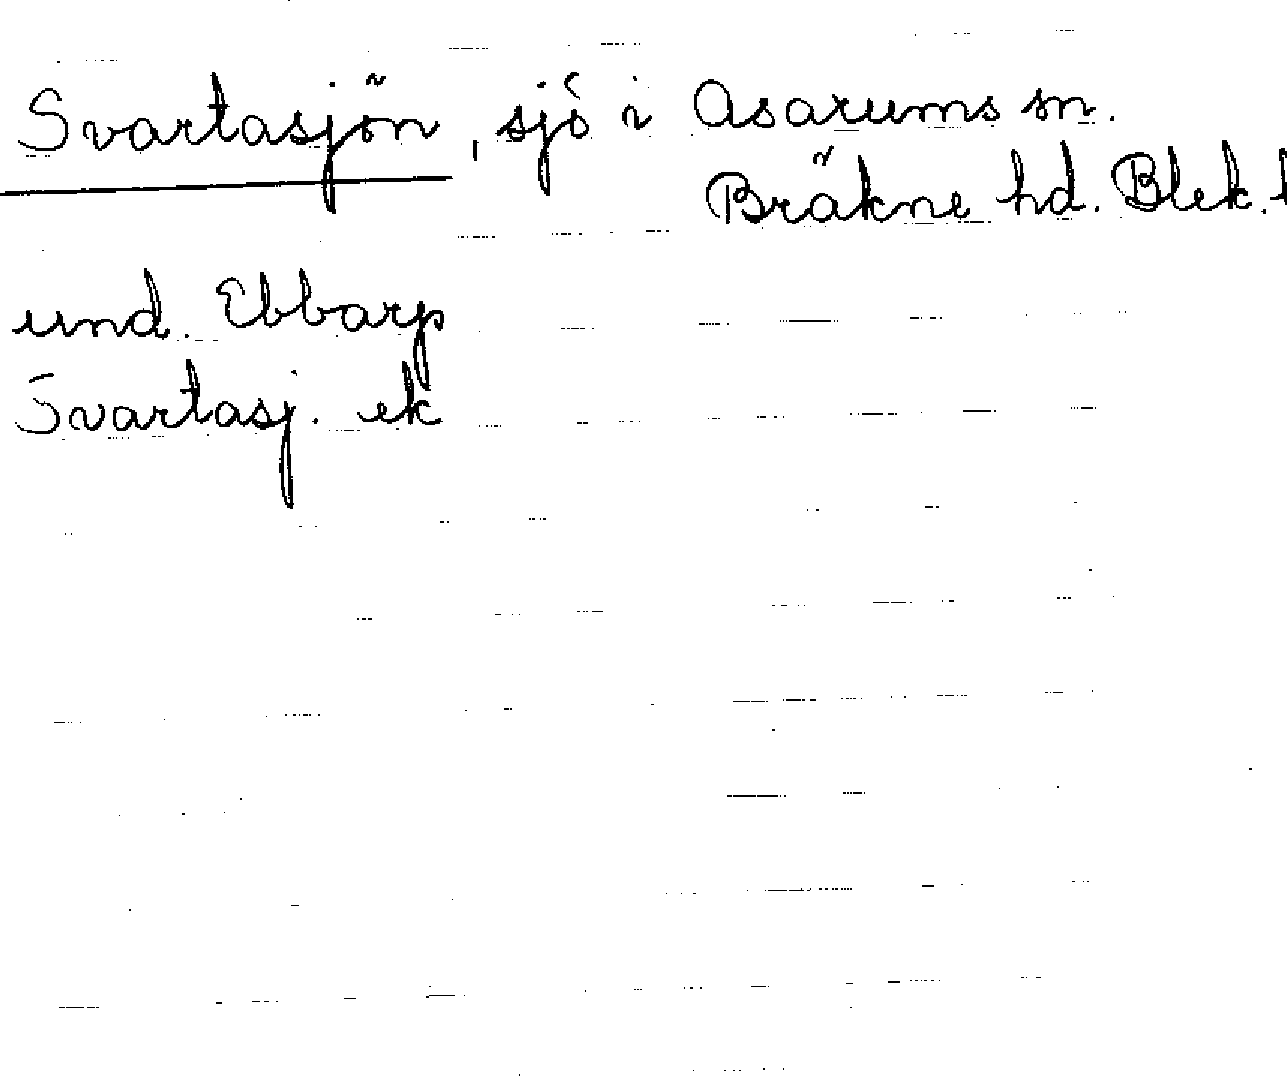 Svartasjön, sjö i Asarums sn.
Bräkne hd. Blek.
und. Ebbarp
Svartasj. ek